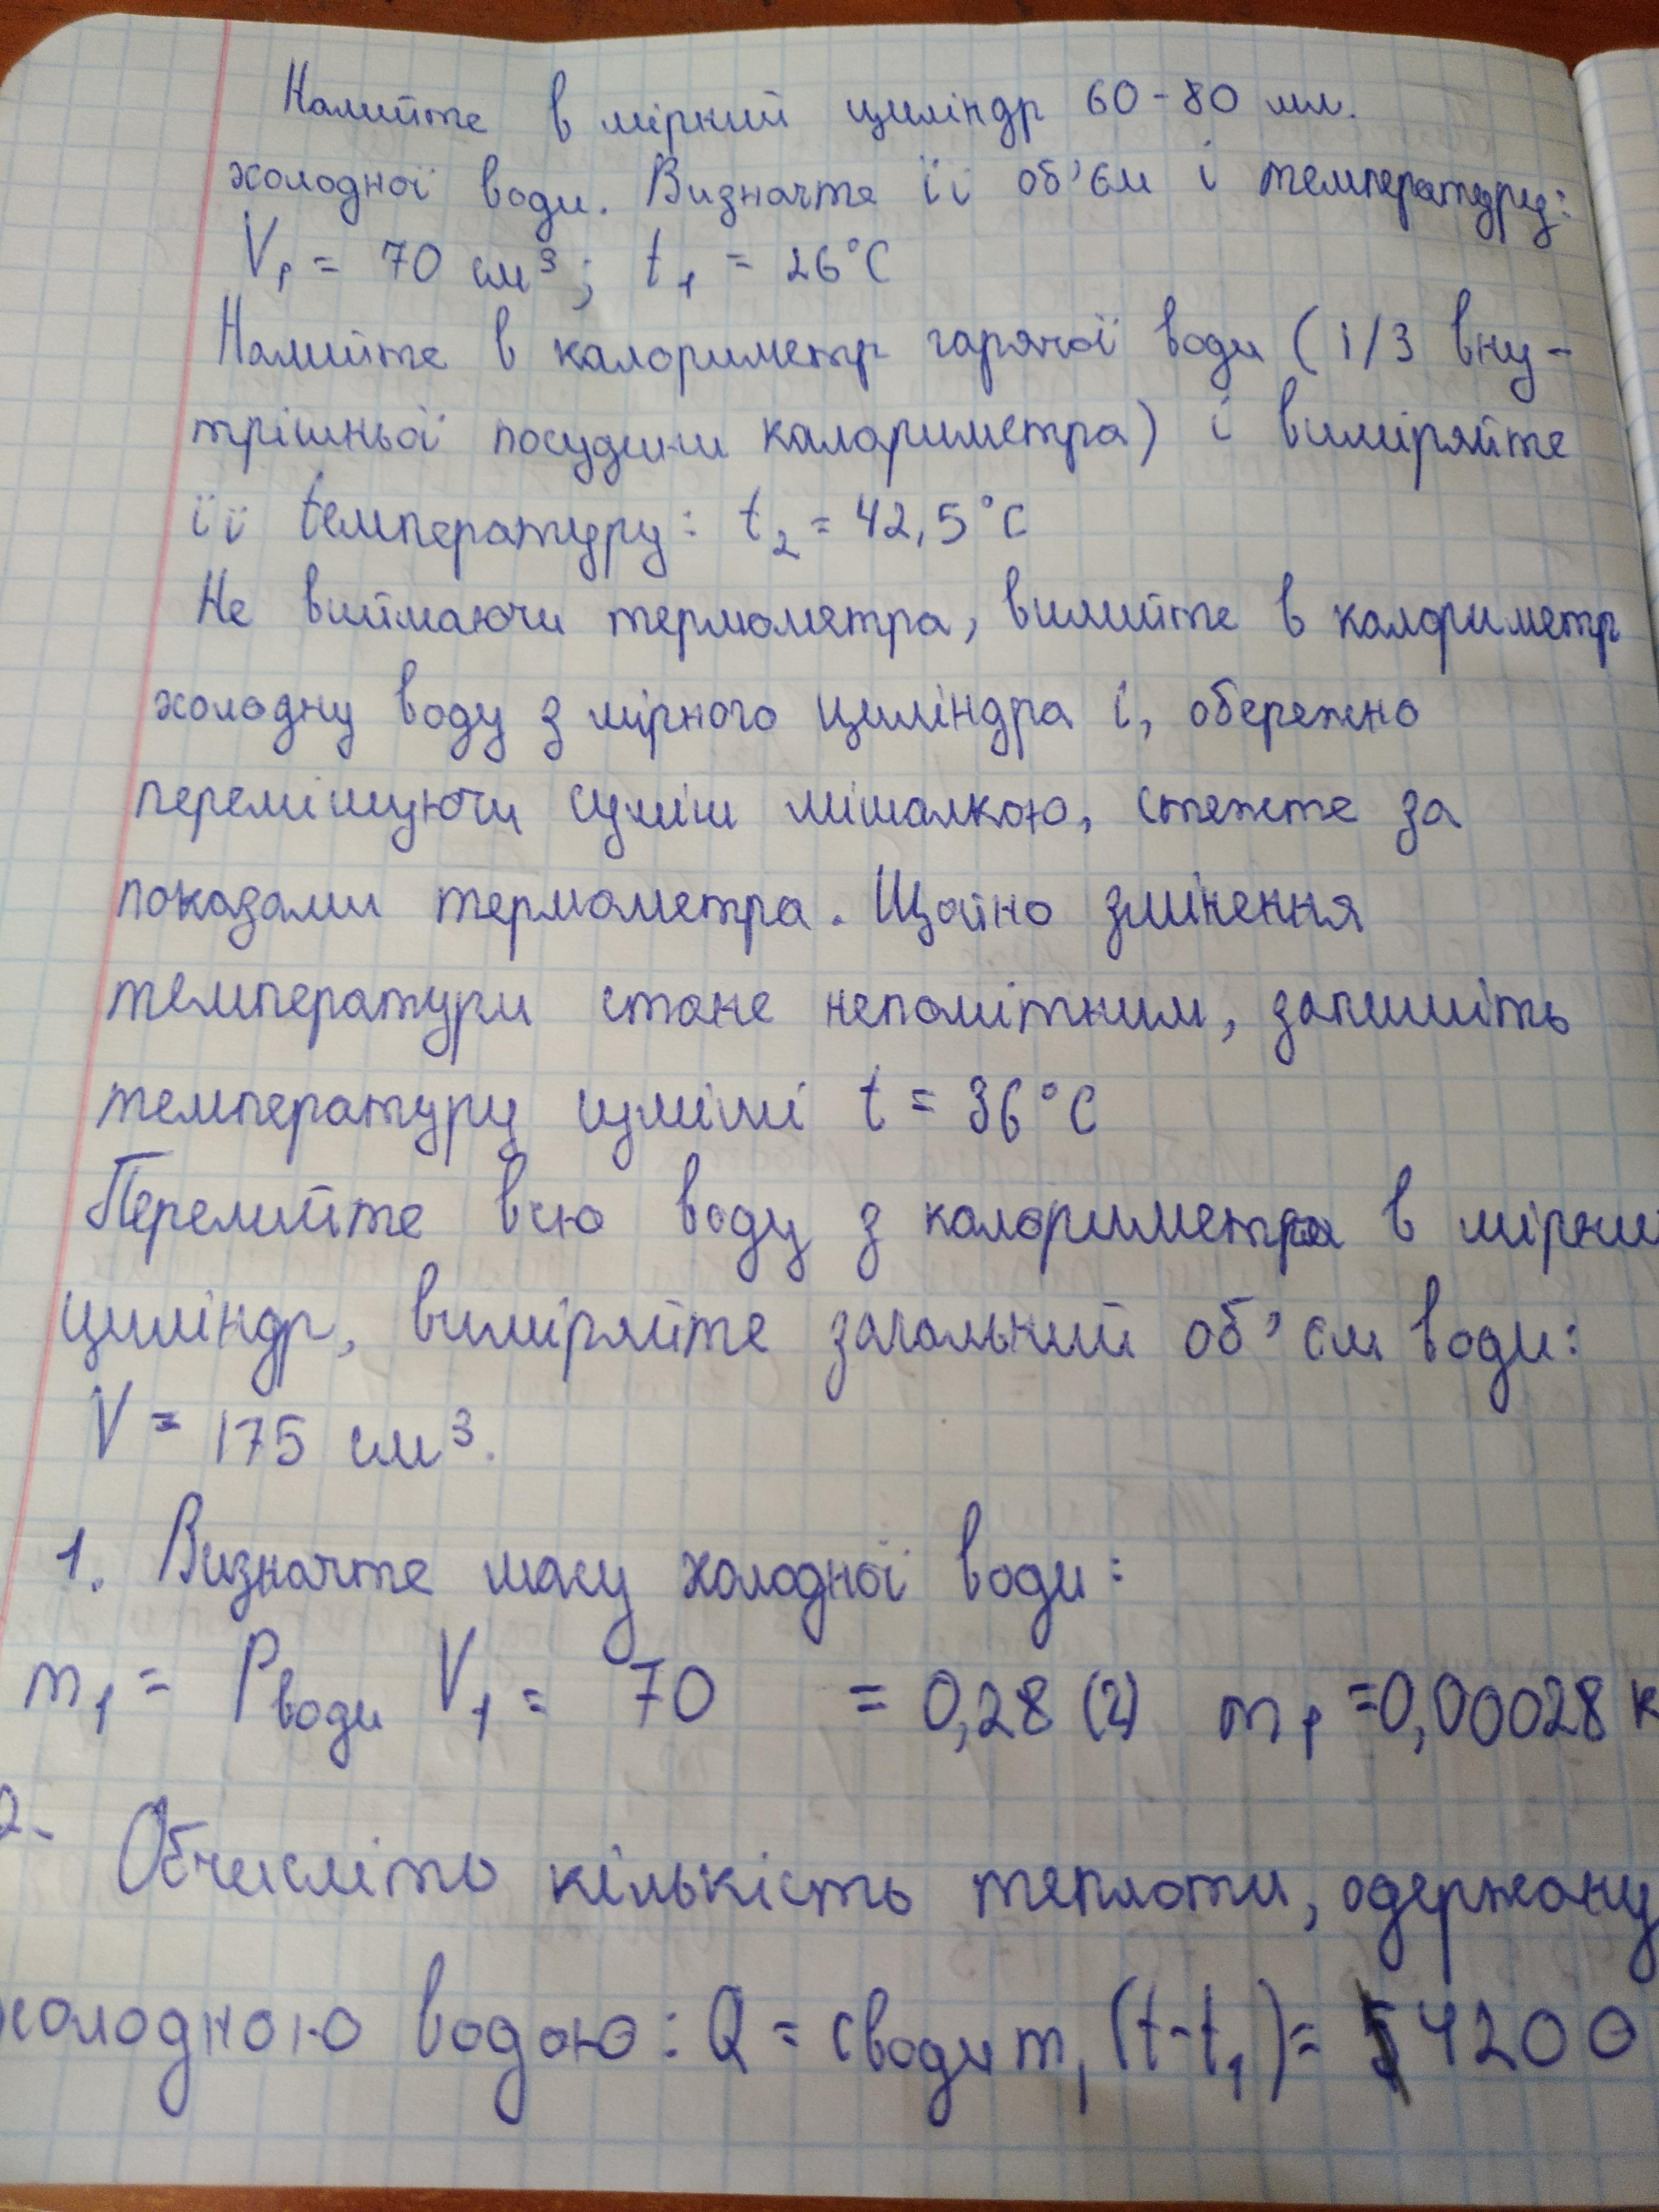 Налийте в мірний циліндр 60-80 мл.
холодної води. Визначте її об'єм і температуру:
V₁ = 70 см³; t₁ = 26°C
Налийте в калориметр гарячої води (1/3 вну-
трішньої посудини калориметра) і виміряйте
її температуру: t₂ = 42,5°C
Не виймаючи термометра, вилийте в калориметр
холодну воду з мірного циліндра і, обережно
перемішуючи суміш мішалкою, стежте за
показами термометра. Щойно змінення
температури стане непомітним, запишіть
температуру суміші t = 36°C
Перелийте всю воду з калориметра в мірни
циліндр, виміряйте загальний об'єм води:
V = 175 см³.
1. Визначте масу холодної води:
m₁ = ρводи V₁ = 70 = 0,28 (г) m₁ = 0,00028 к
2. Обчисліть кількість теплоти, одержану
холодною водою: Q = cводи m₁ (t-t₁) = 4200